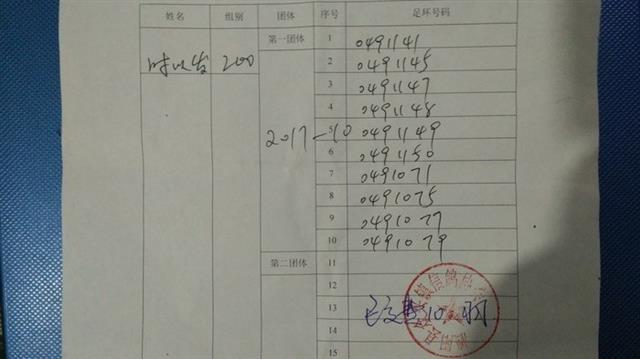 姓名 组别 团体 序号 足环号码
第一团体 1 0491141
200 2 0491145
3 0491147
4 0491148
2017-10 5 0491149
6 0491150
7 0491071
8 0491075
9 0491077
10 0491079
第二团体 11
12
13
14
15